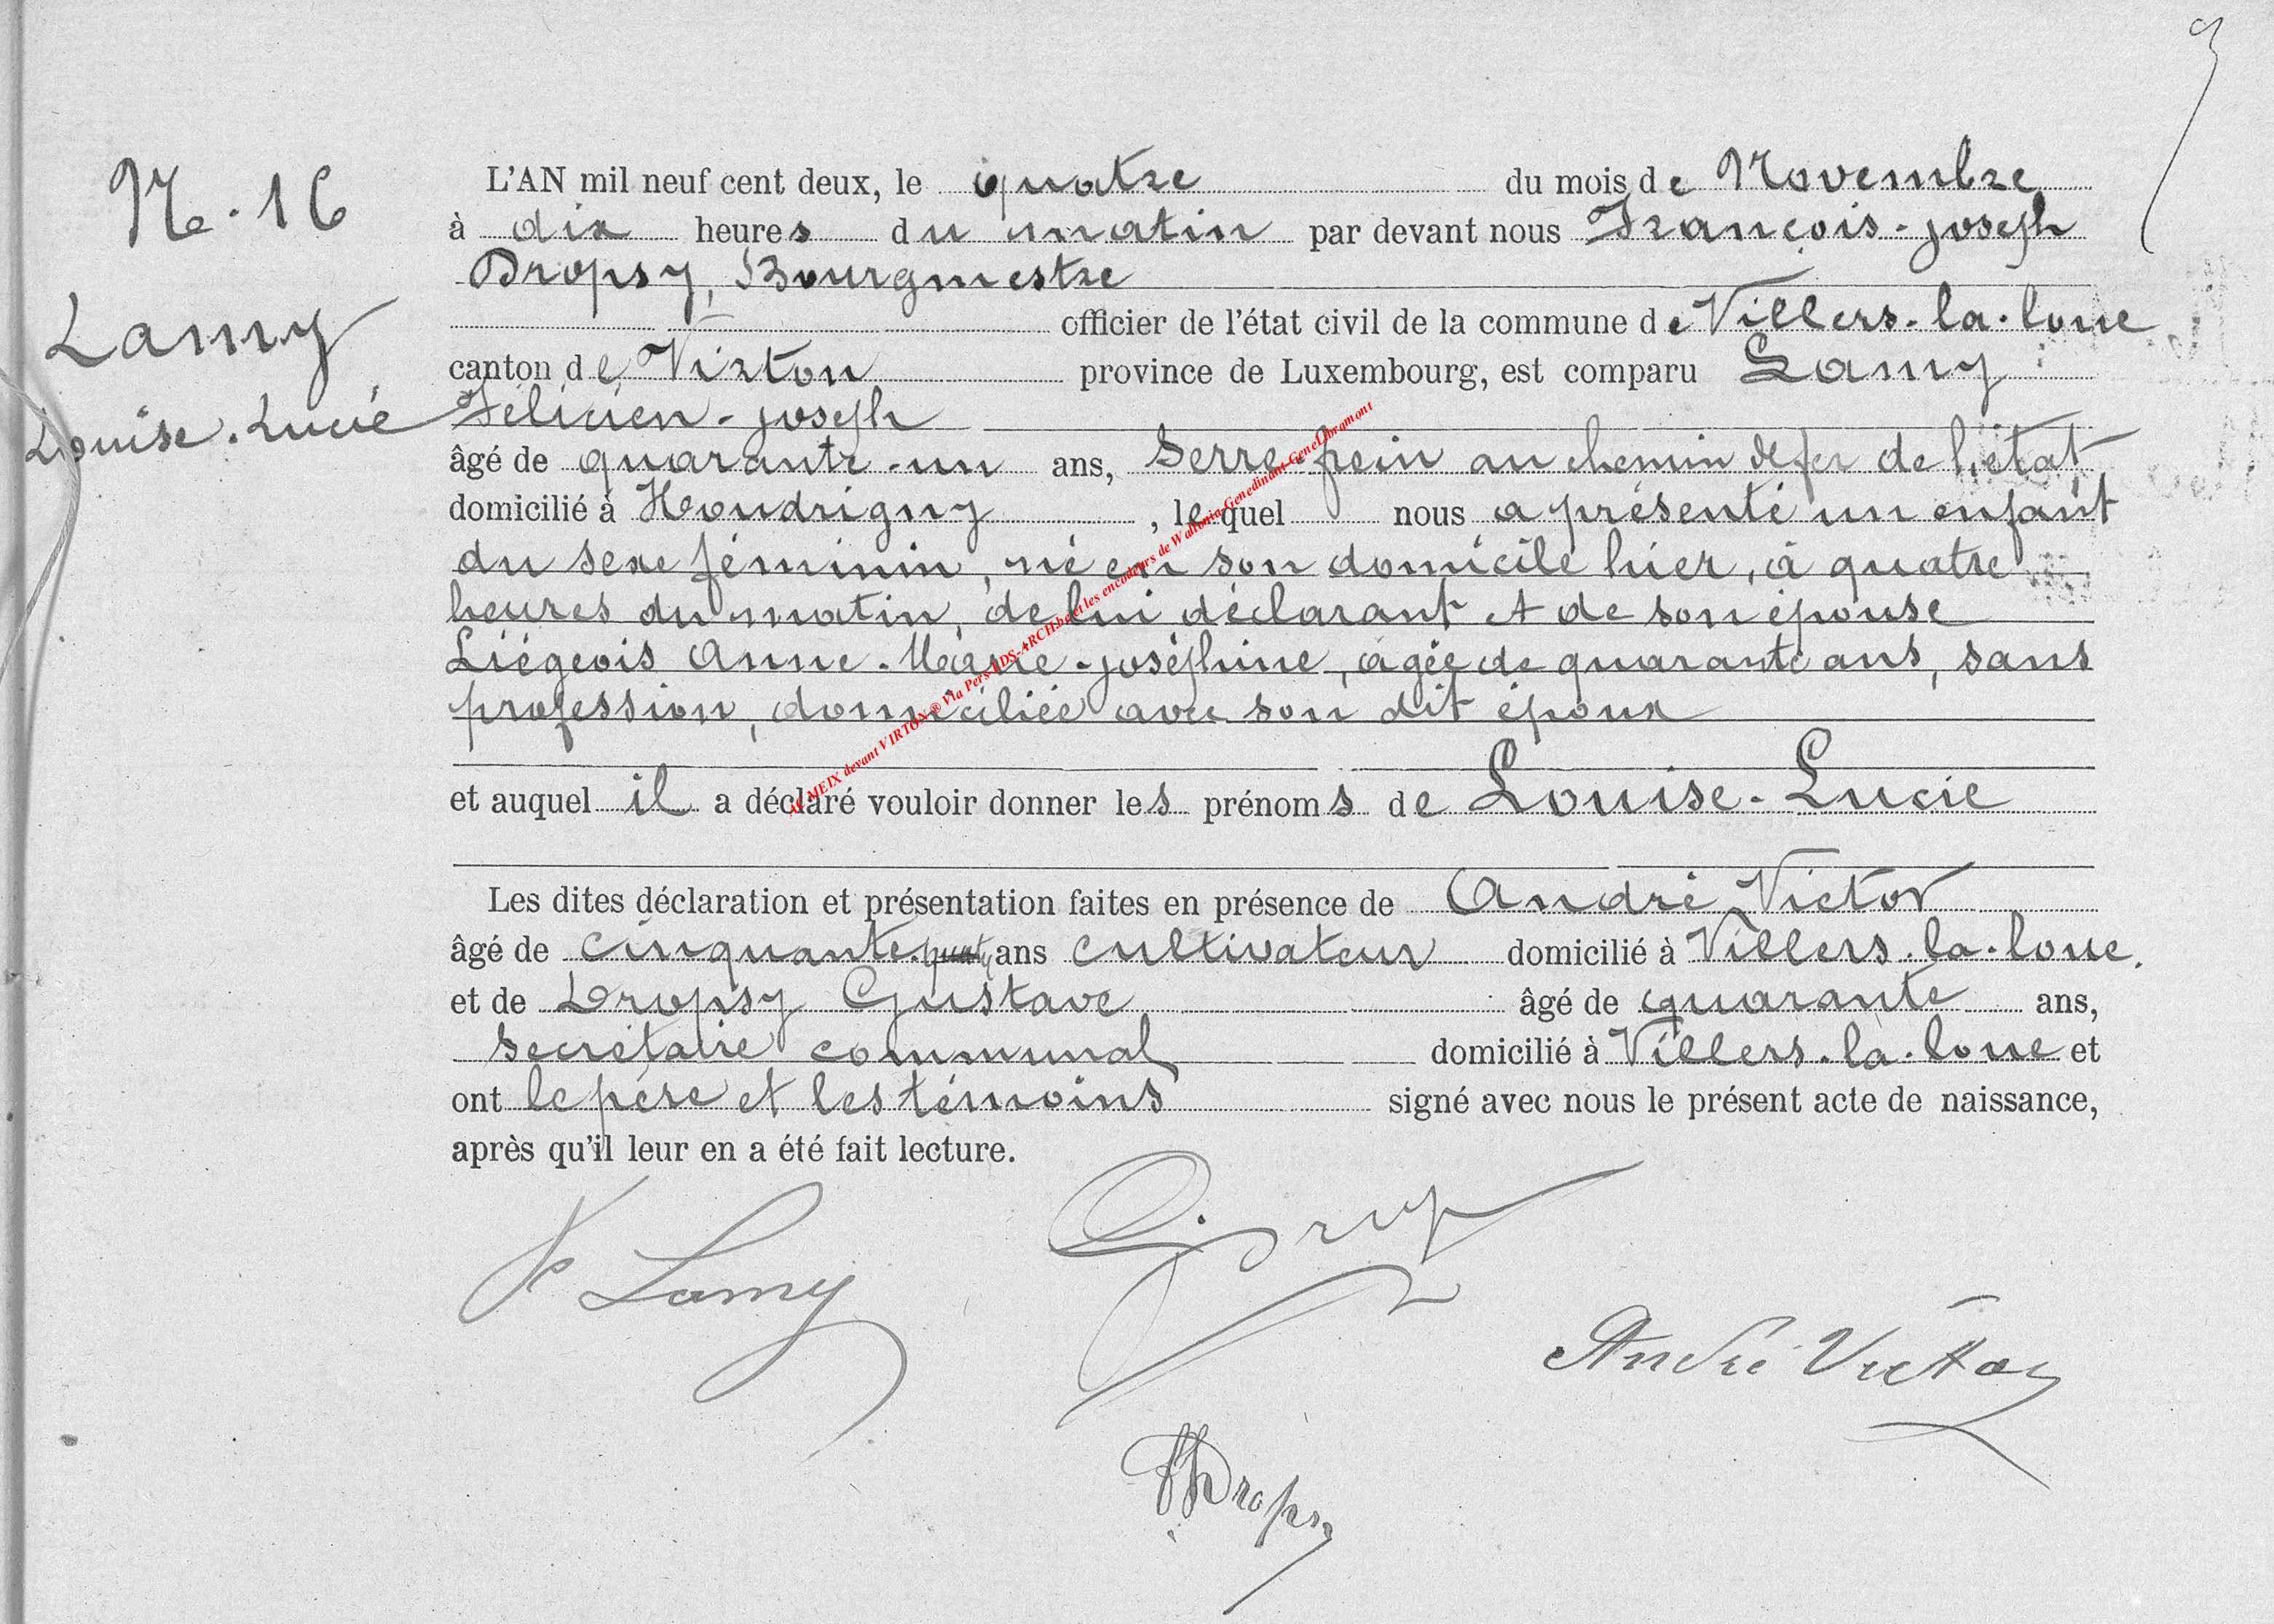 N. 16
Lamy
Louise-Lucie
L'AN mil neuf cent deux, le quatre du mois de Novembre
à dix heures du matin par devant nous François-joseph
Dropsy, Bourgmestre
officier de l'état civil de la commune de Villers-la-loue
canton de Virton province de Luxembourg, est comparu Lamy
Félicien-joseph
âgé de quarante-un ans, serre-frein au chemin de fer de l'état
domicilié à Houdrigny, lequel nous a présenté un enfant
du sexe féminin, né en son domicile hier, à quatre
heures du matin, de lui déclarant et de son épouse
Liégeois Anne-Marie-joséphine, agée de quarante ans, sans
profession, domiciliée avec son dit époux
et auquel il a déclaré vouloir donner les prénoms de Louise-Lucie
Les dites déclaration et présentation faites en présence de André Victor
âgé de cinquante ans cultivateur domicilié à Villers-la-loue.
et de Dropsy Gustave âgé de quarante ans,
secrétaire communal domicilié à Villers-la-loue et
ont le père et les témoins signé avec nous le présent acte de naissance,
après qu'il leur en a été fait lecture.
Lamy
André Victor
Dropsy
MEIX devant VIRTON @ Via Pers-BDS-ARCH.be et les encodeurs de Wallonia-Genedinant-GeneLibramont